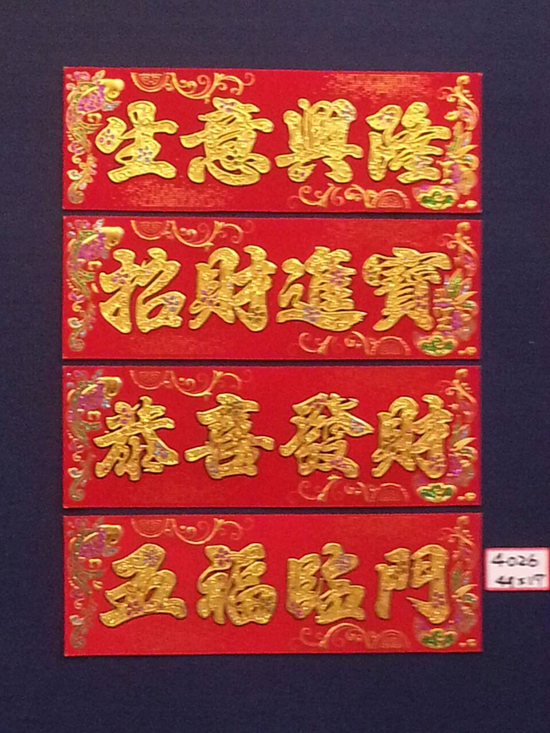 生意興隆
招財進寶
恭喜發財
五福臨門
4026
44x17